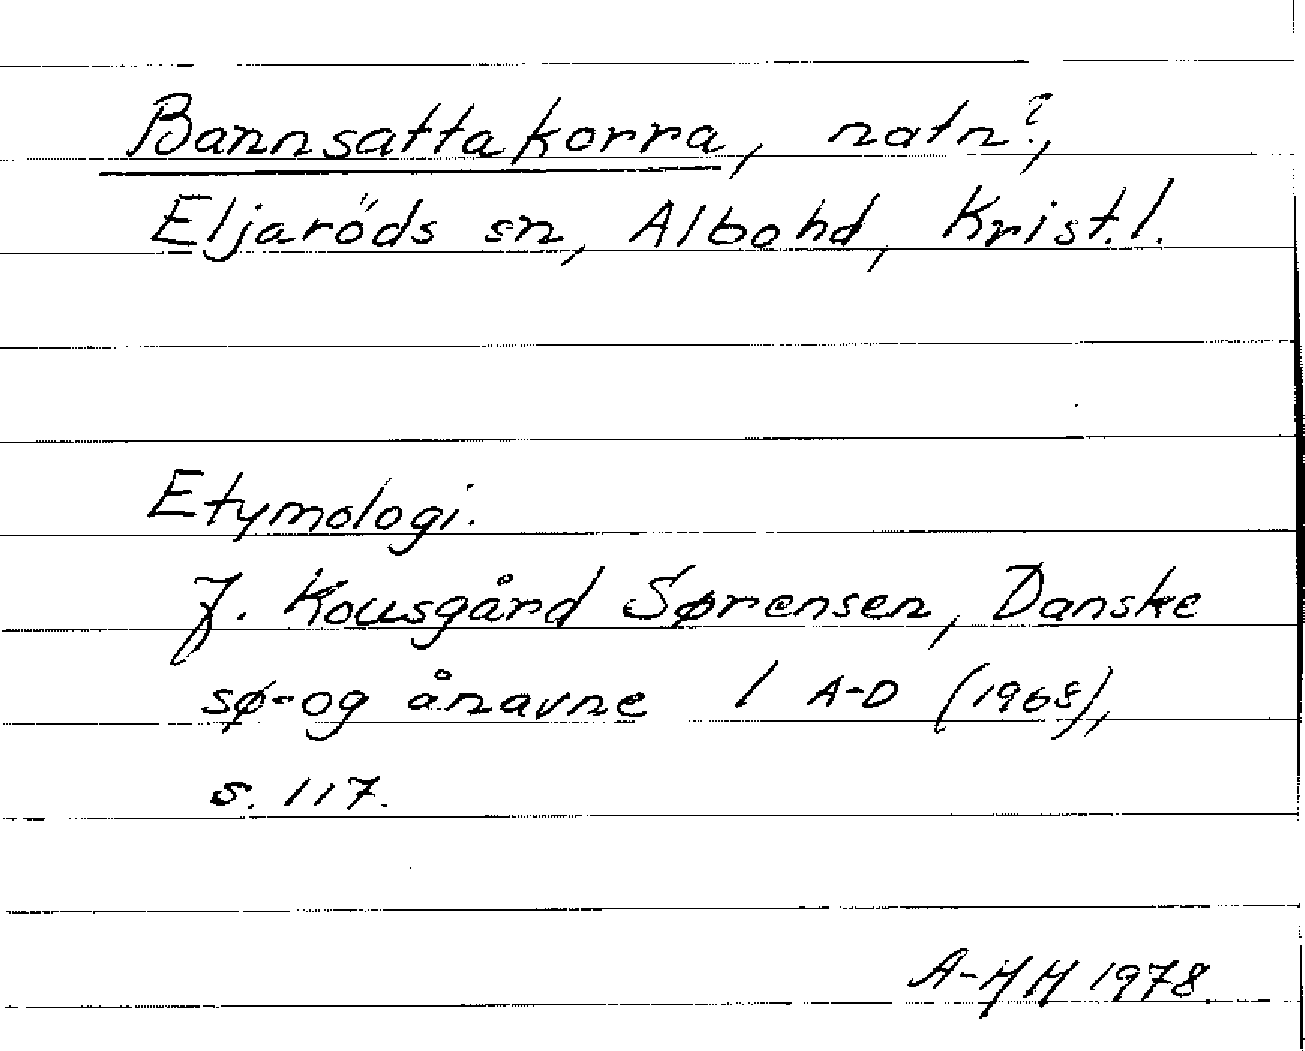 Bannsattakorra, natn?,
Eljaröds sn, Albo hd, Krist. l.
Etymologi.
J. Kousgård Sørensen, Danske
sø- og ånavne 1 A-D (1968),
s. 117.
A-HH 1978.